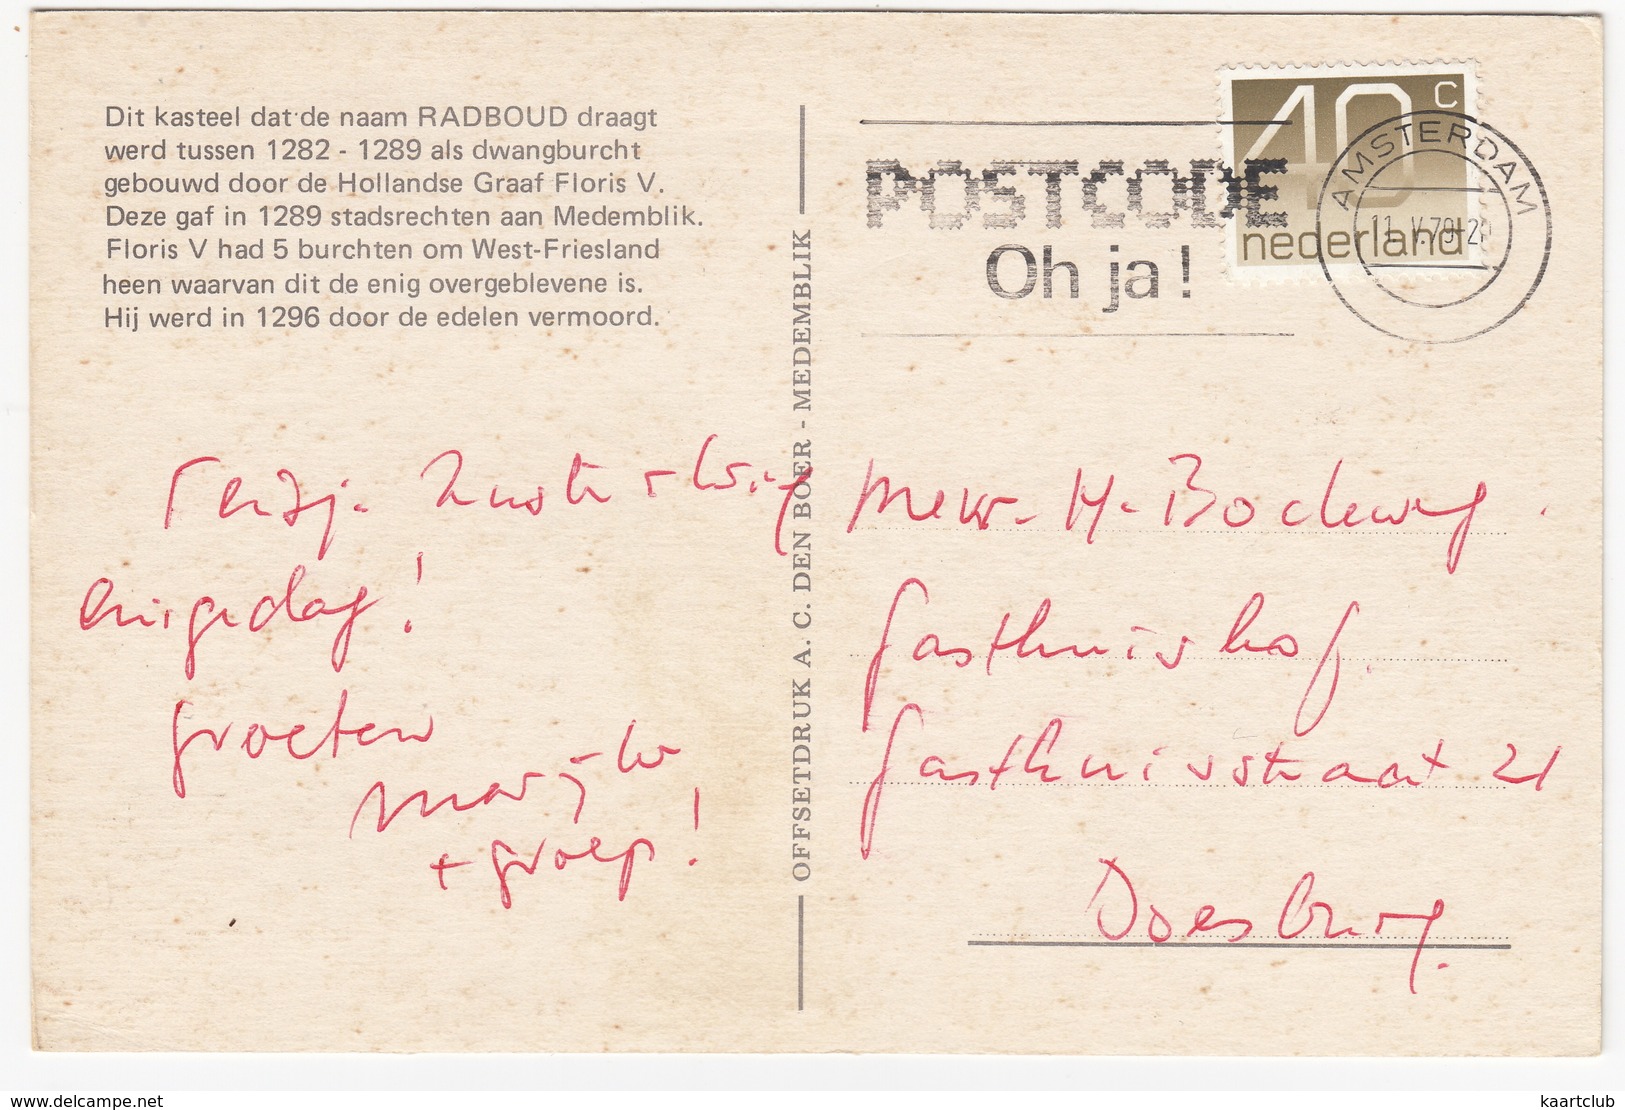 Dit kasteel dat de naam RADBOUD draagt
werd tussen 1282 - 1289 als dwangburcht
gebouwd door de Hollandse Graaf Floris V.
Deze gaf in 1289 stadsrechten aan Medemblik.
Floris V had 5 burchten om West-Friesland
heen waarvan dit de enig overgeblevene is.
Hij werd in 1296 door de edelen vermoord.
OFFSETDRUK A. C. DEN BOER - MEDEMBLIK
POSTCODE
Oh ja!
40 c
nederland
AMSTERDAM
11. V.79
enigedag!
groeten
+ groep!
Mevr. H. Bodeweg.
Gasthuishof.
Gasthuisstraat 21
Doesburg.
delcampe.net
kaartclub